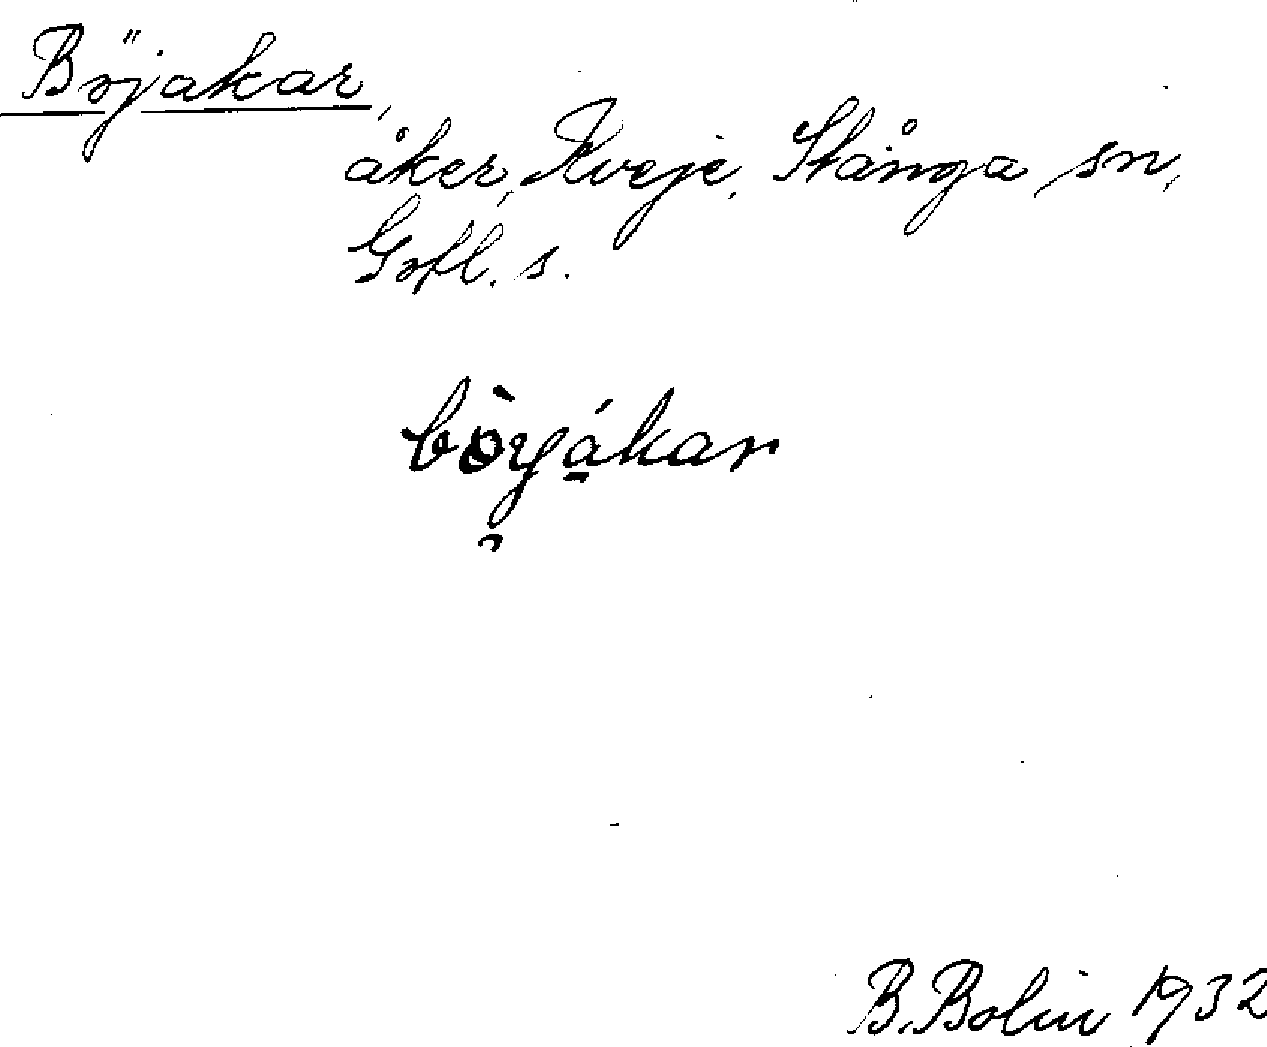 Böjakar,
åker, Kveje, Stånga sn,
Gotl. s.
B. Bolin 1932